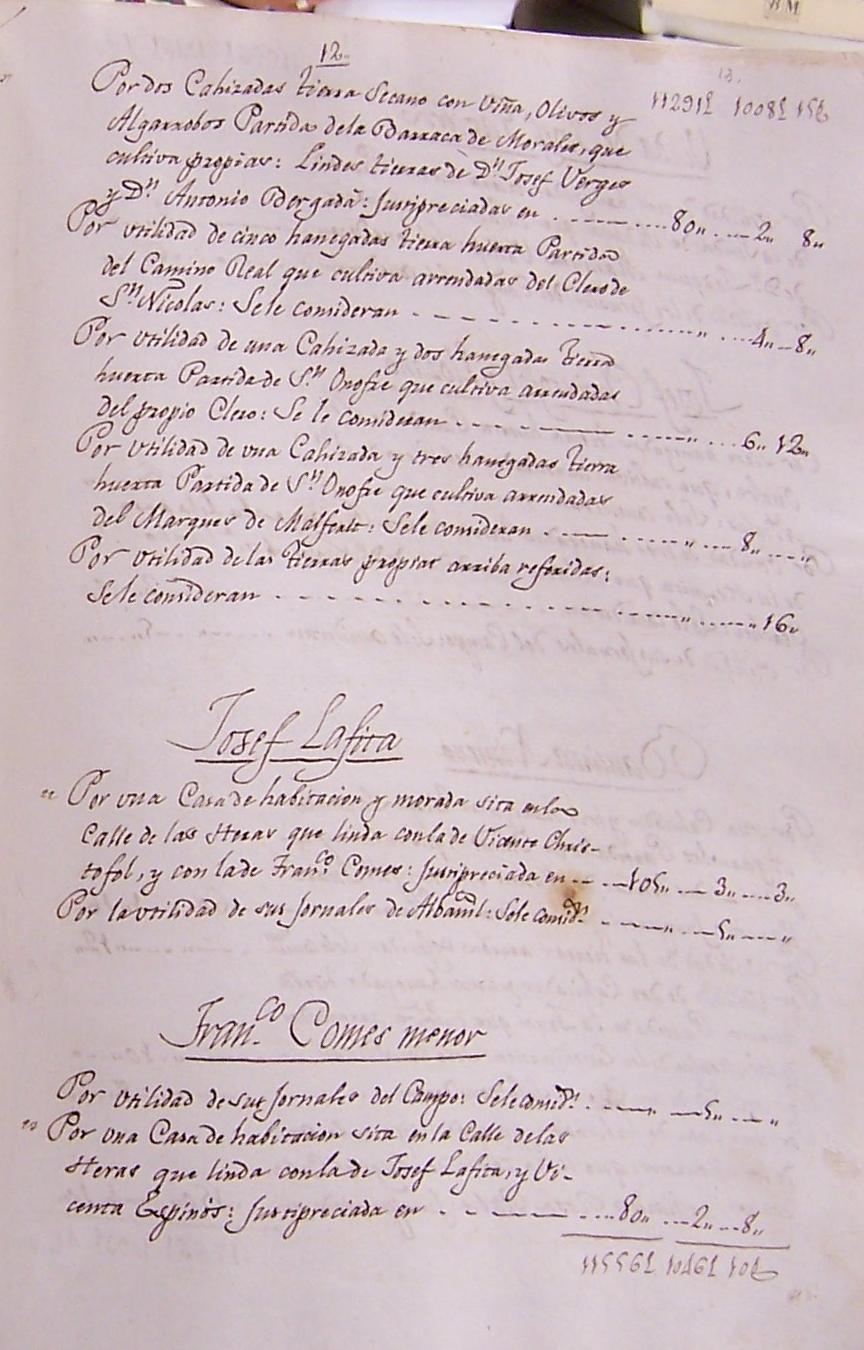 12.
11291£ 1008£ 15§
Por dos Cahizadas tierra Secano con viña, Olivos y
Algarrobos Partida dela Barraca de Morales, que
cultiva propias: Lindes tierras de Dn. Josef Verges
y Dn. Antonio Bergadá: Justipreciadas en 80,, 2,, 8,,
Por vtilidad de cinco hanegadas tierra huerta Partida
del Camino Real que cultiva arrendadas del Clero de
Sn. Nicolas: Sele consideran 4,, 8,,
Por vtilidad de una Cahizada y dos hanegadas tierra
huerta Partida de Sn. Onofre que cultiva arrendadas
del propio Clero: Se le consideran 6,, 12,,
Por vtilidad de vna Cahizada y tres hanegadas tierra
huerta Partida de Sn. Onofre que cultiva arrendadas
del Marques de Malferit: Sele consideran 8,, ,,
Por vtilidad de las tierras propias arriba referidas:
Sele consideran 16,,
Josef Lafita
,, Por vna Casa de habitacion y morada sita en la
Calle de las Heras que linda con la de Vicente Chris-
tofol, y con la de Franco. Comes: Justipreciada en 105,, 3,, 3,,
Por la vtilidad de sus Jornales de Albañil: Sele consid.n ,, 5,, ,,
Franco. Comes menor
Por vtilidad de sus Jornales del Campo: Sele consid.n ,, 5,, ,,
,, Por vna Casa de habitacion sita en la Calle de las
Heras que linda con la de Josef Lafita, y Vi-
centa Espinós: Justipreciada en 80,, 2,, 8,,
11556£ 1046£ 10§